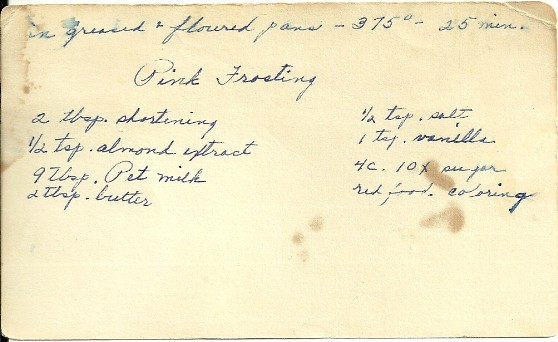 in greased & floured pans - 375° - 25 min.
Pink Frosting
2 tbsp. shortening
1/2 tsp. almond extract
9 tbsp. Pet milk
2 tbsp. butter
1/2 tsp. salt
1 tsp. vanilla
4 c. 10X sugar
red food coloring